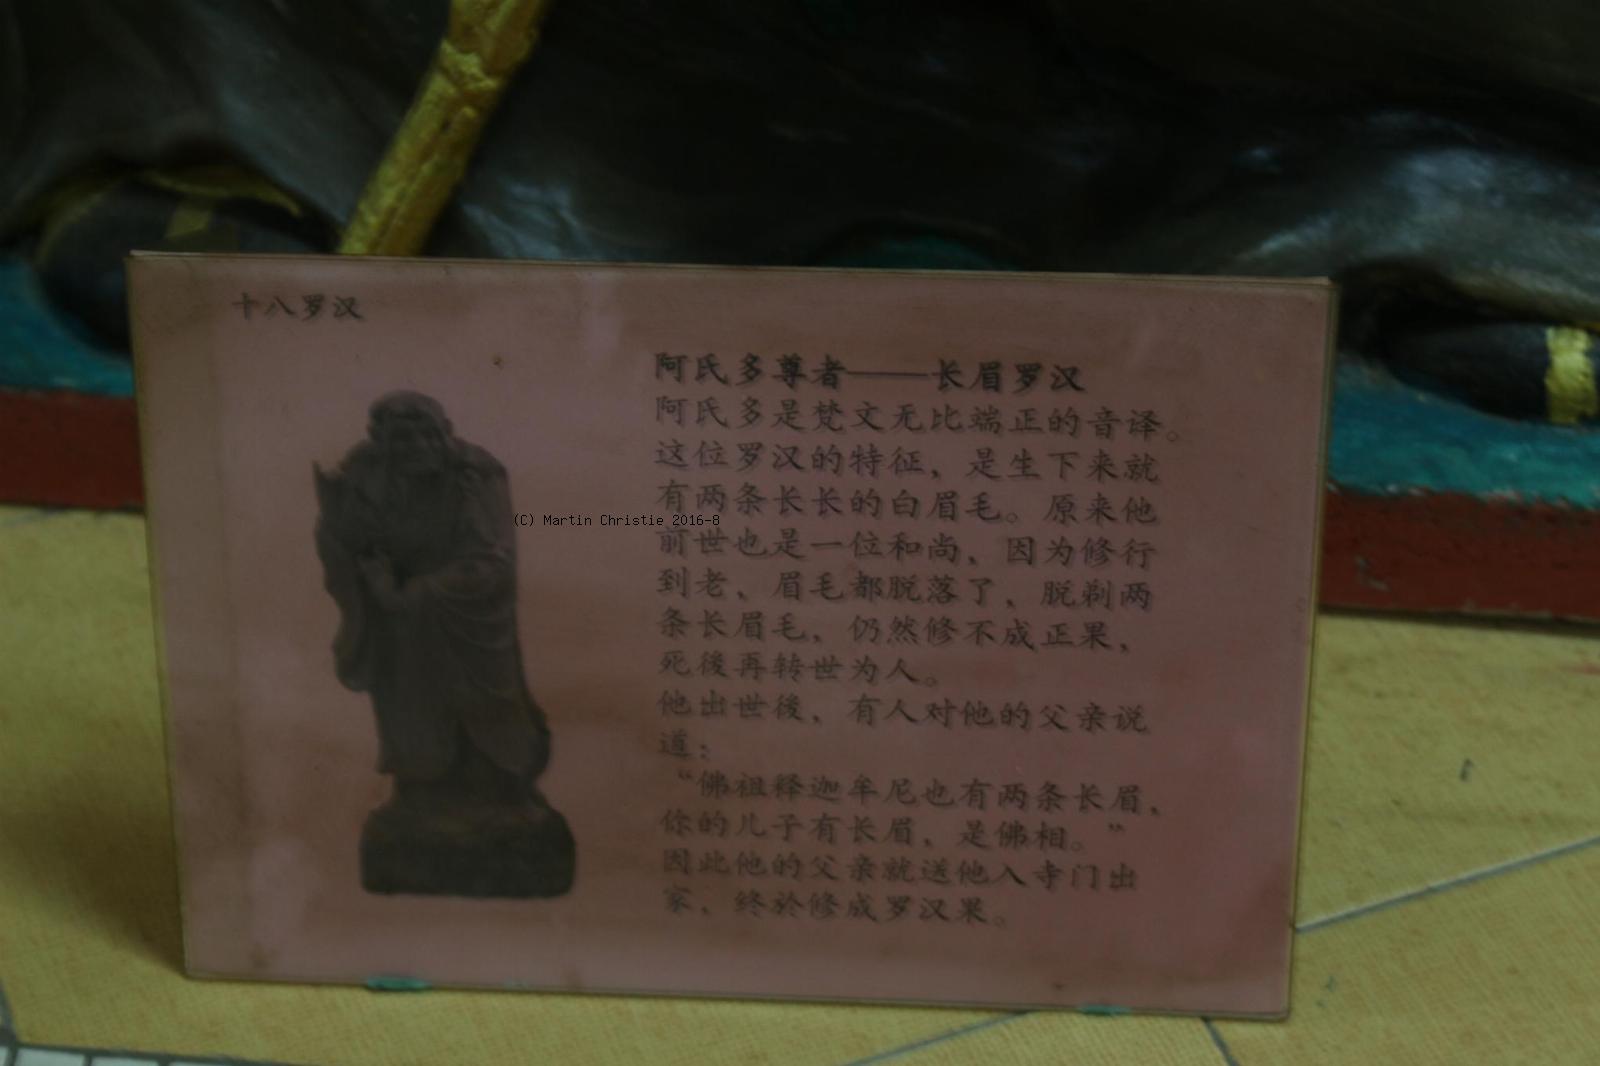 十八罗汉
阿氏多尊者——长眉罗汉
阿氏多是梵文无比端正的音译。
这位罗汉的特征，是生下来就
有两条长长的白眉毛。原来他
前世也是一位和尚，因为修行
到老、眉毛都脱落了，脱剃两
条长眉毛，仍然修不成正果，
死後再转世为人。
他出世後，有人对他的父亲说
道：
“佛祖释迦牟尼也有两条长眉，
你的儿子有长眉，是佛相。”
因此他的父亲就送他入寺门出
家，终於修成罗汉果。
(C) Martin Christie 2016-8